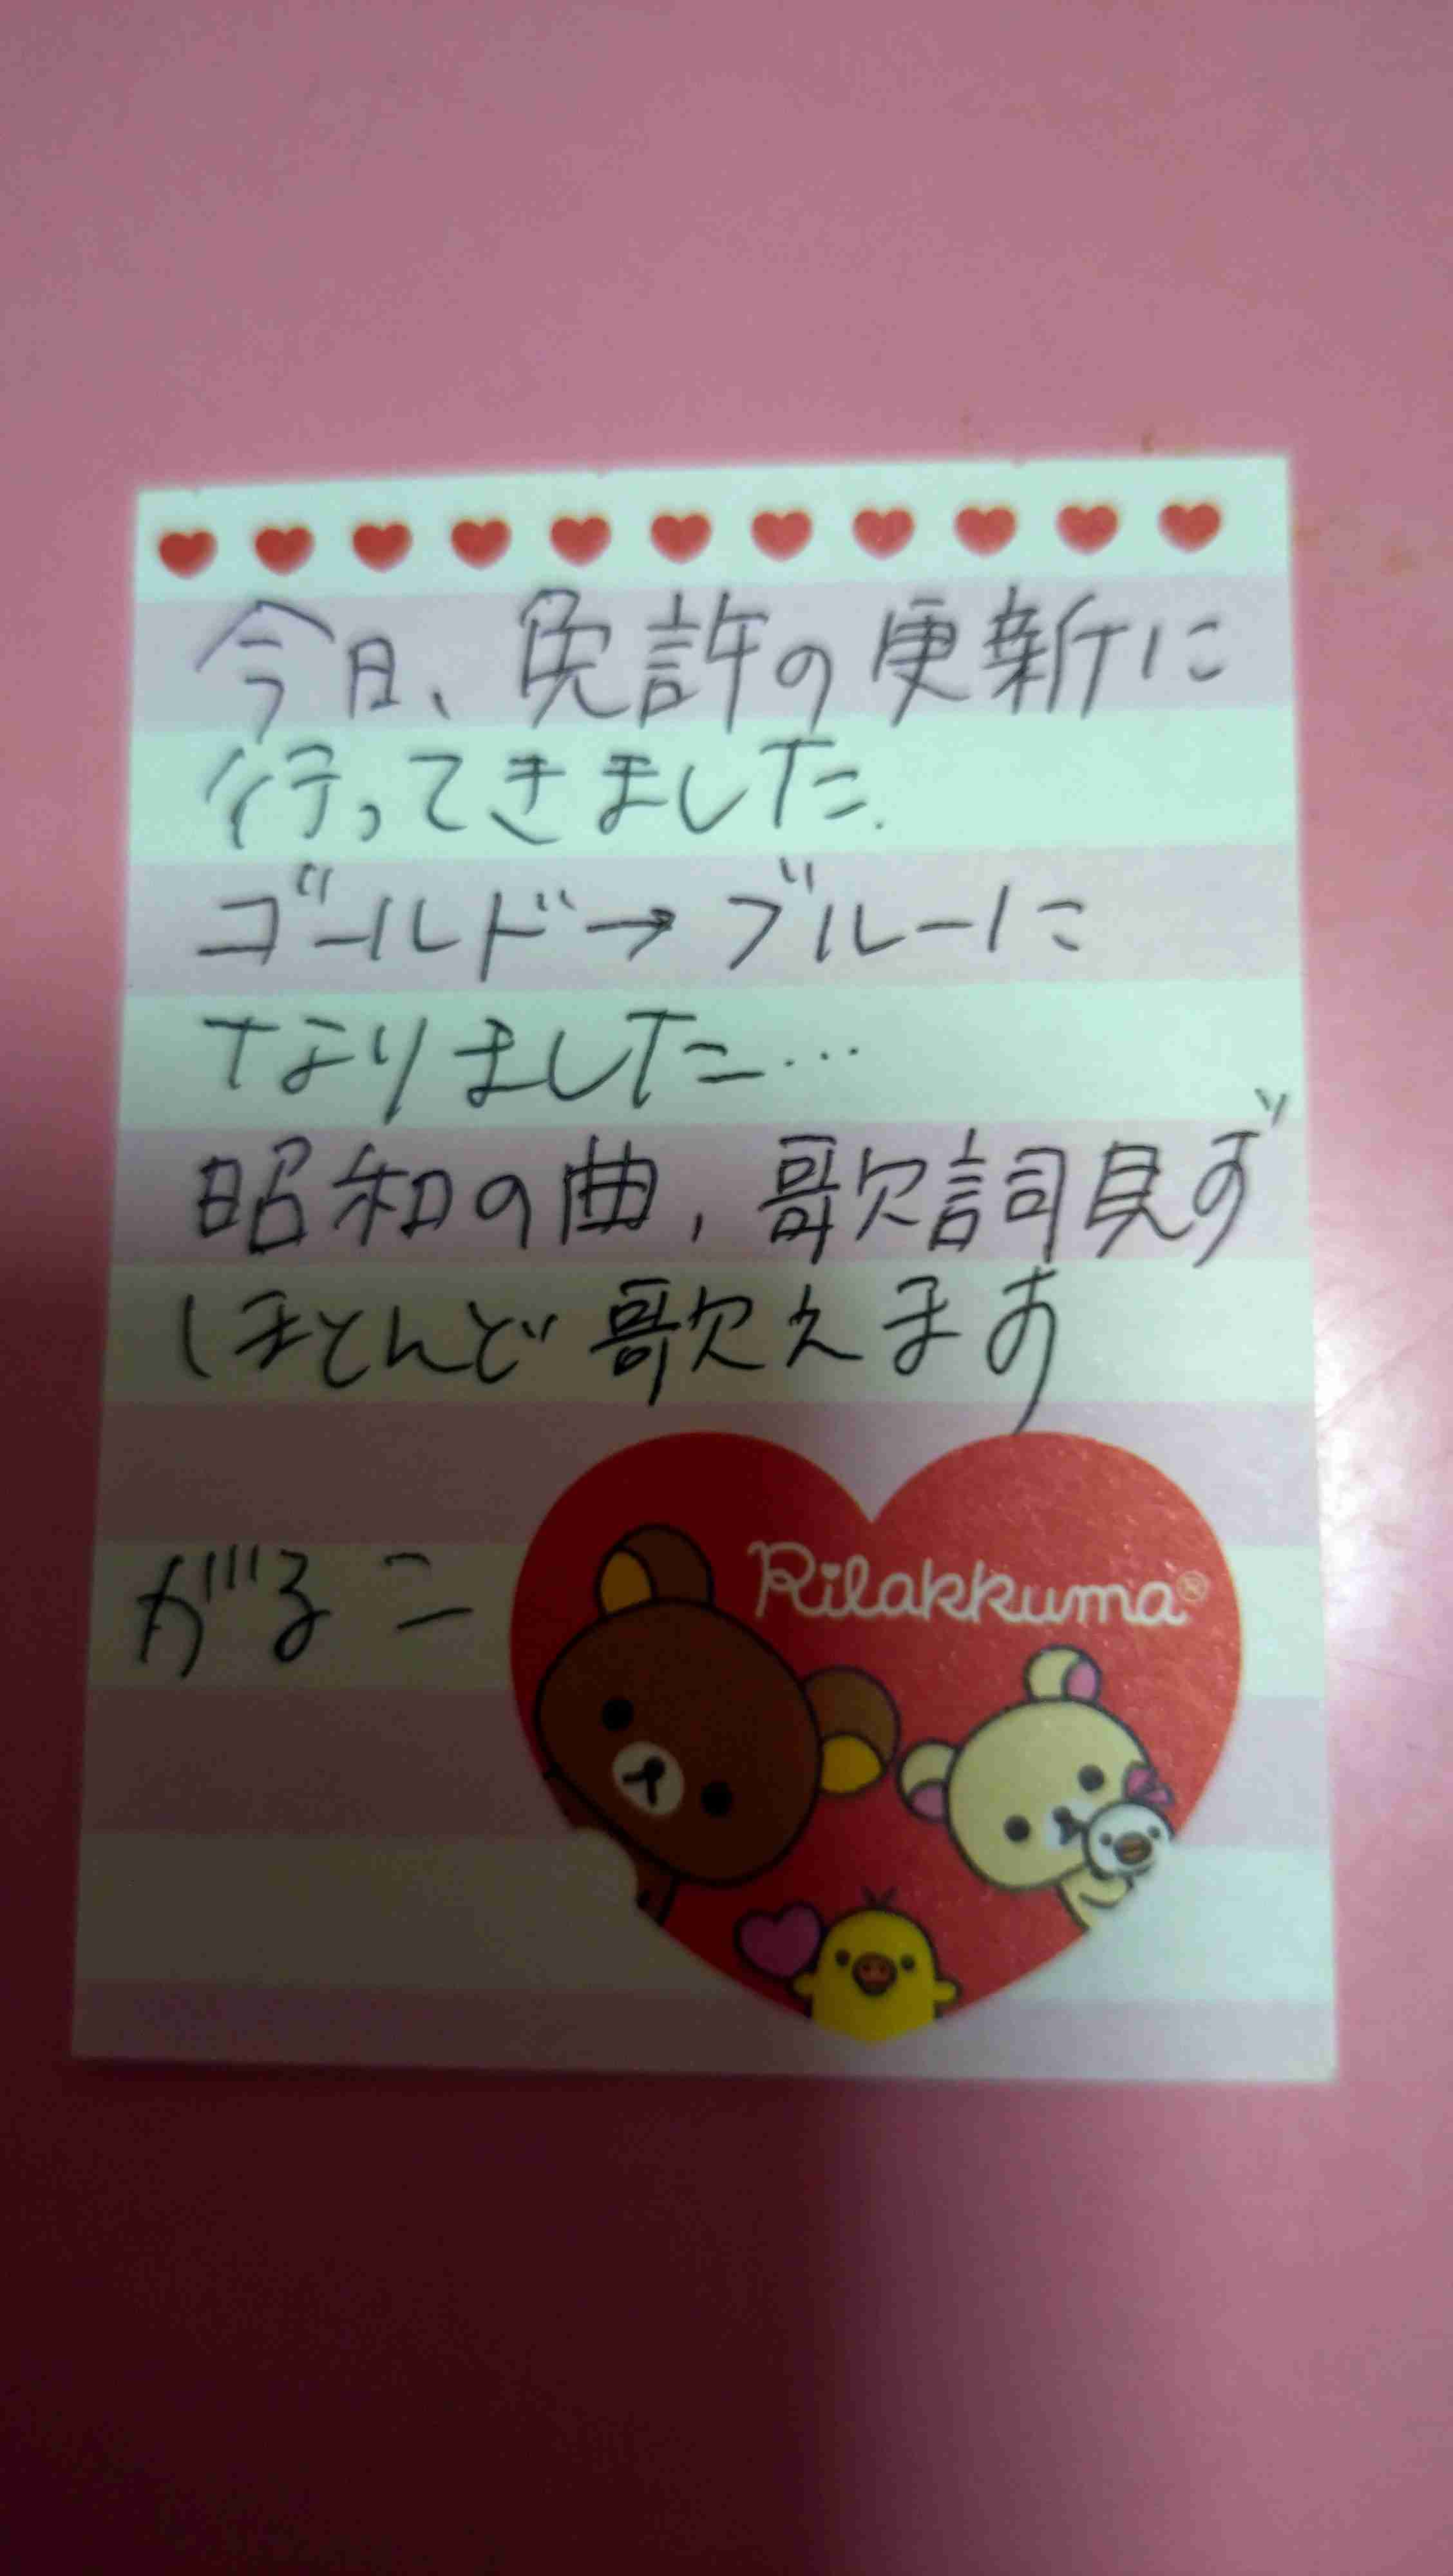 今日、免許の更新に
行ってきました.
ゴールド→ブルーに
なりました…
昭和の曲，歌詞見ず
ほとんど歌えます
がるこ
Rilakkuma®